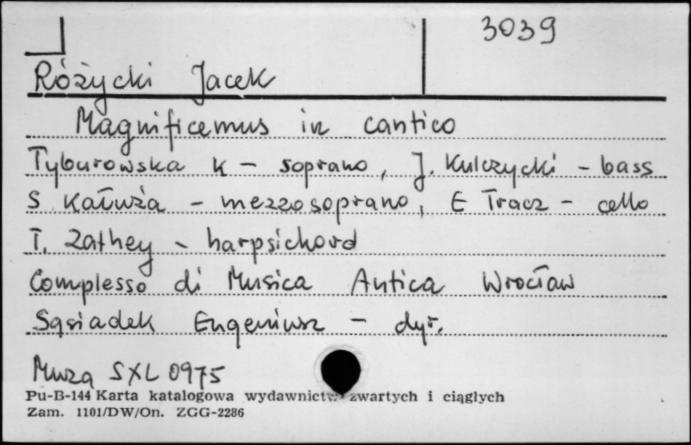 3039
Różycki Jacek
Magnificemus in cantico
Tyburowska K – soprano, J. Kulczycki – bass
S. Kałuża – mezzosoprano, E Tracz – cello
T. Zathey – harpsichord
Complesso di Musica Antica Wrocław
Sąsiadek Eugeniusz – dyr.
Muza SXL 0975
Pu-B-144 Karta katalogowa wydawnictw zwartych i ciągłych
Zam. 1101/DW/On. ZGG-2286